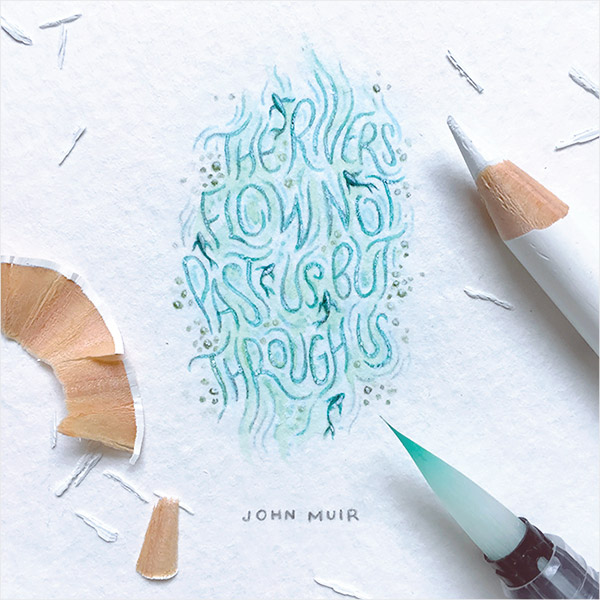 THE RIVERS
FLOW NOT
PAST US, BUT
THROUGH US
JOHN MUIR